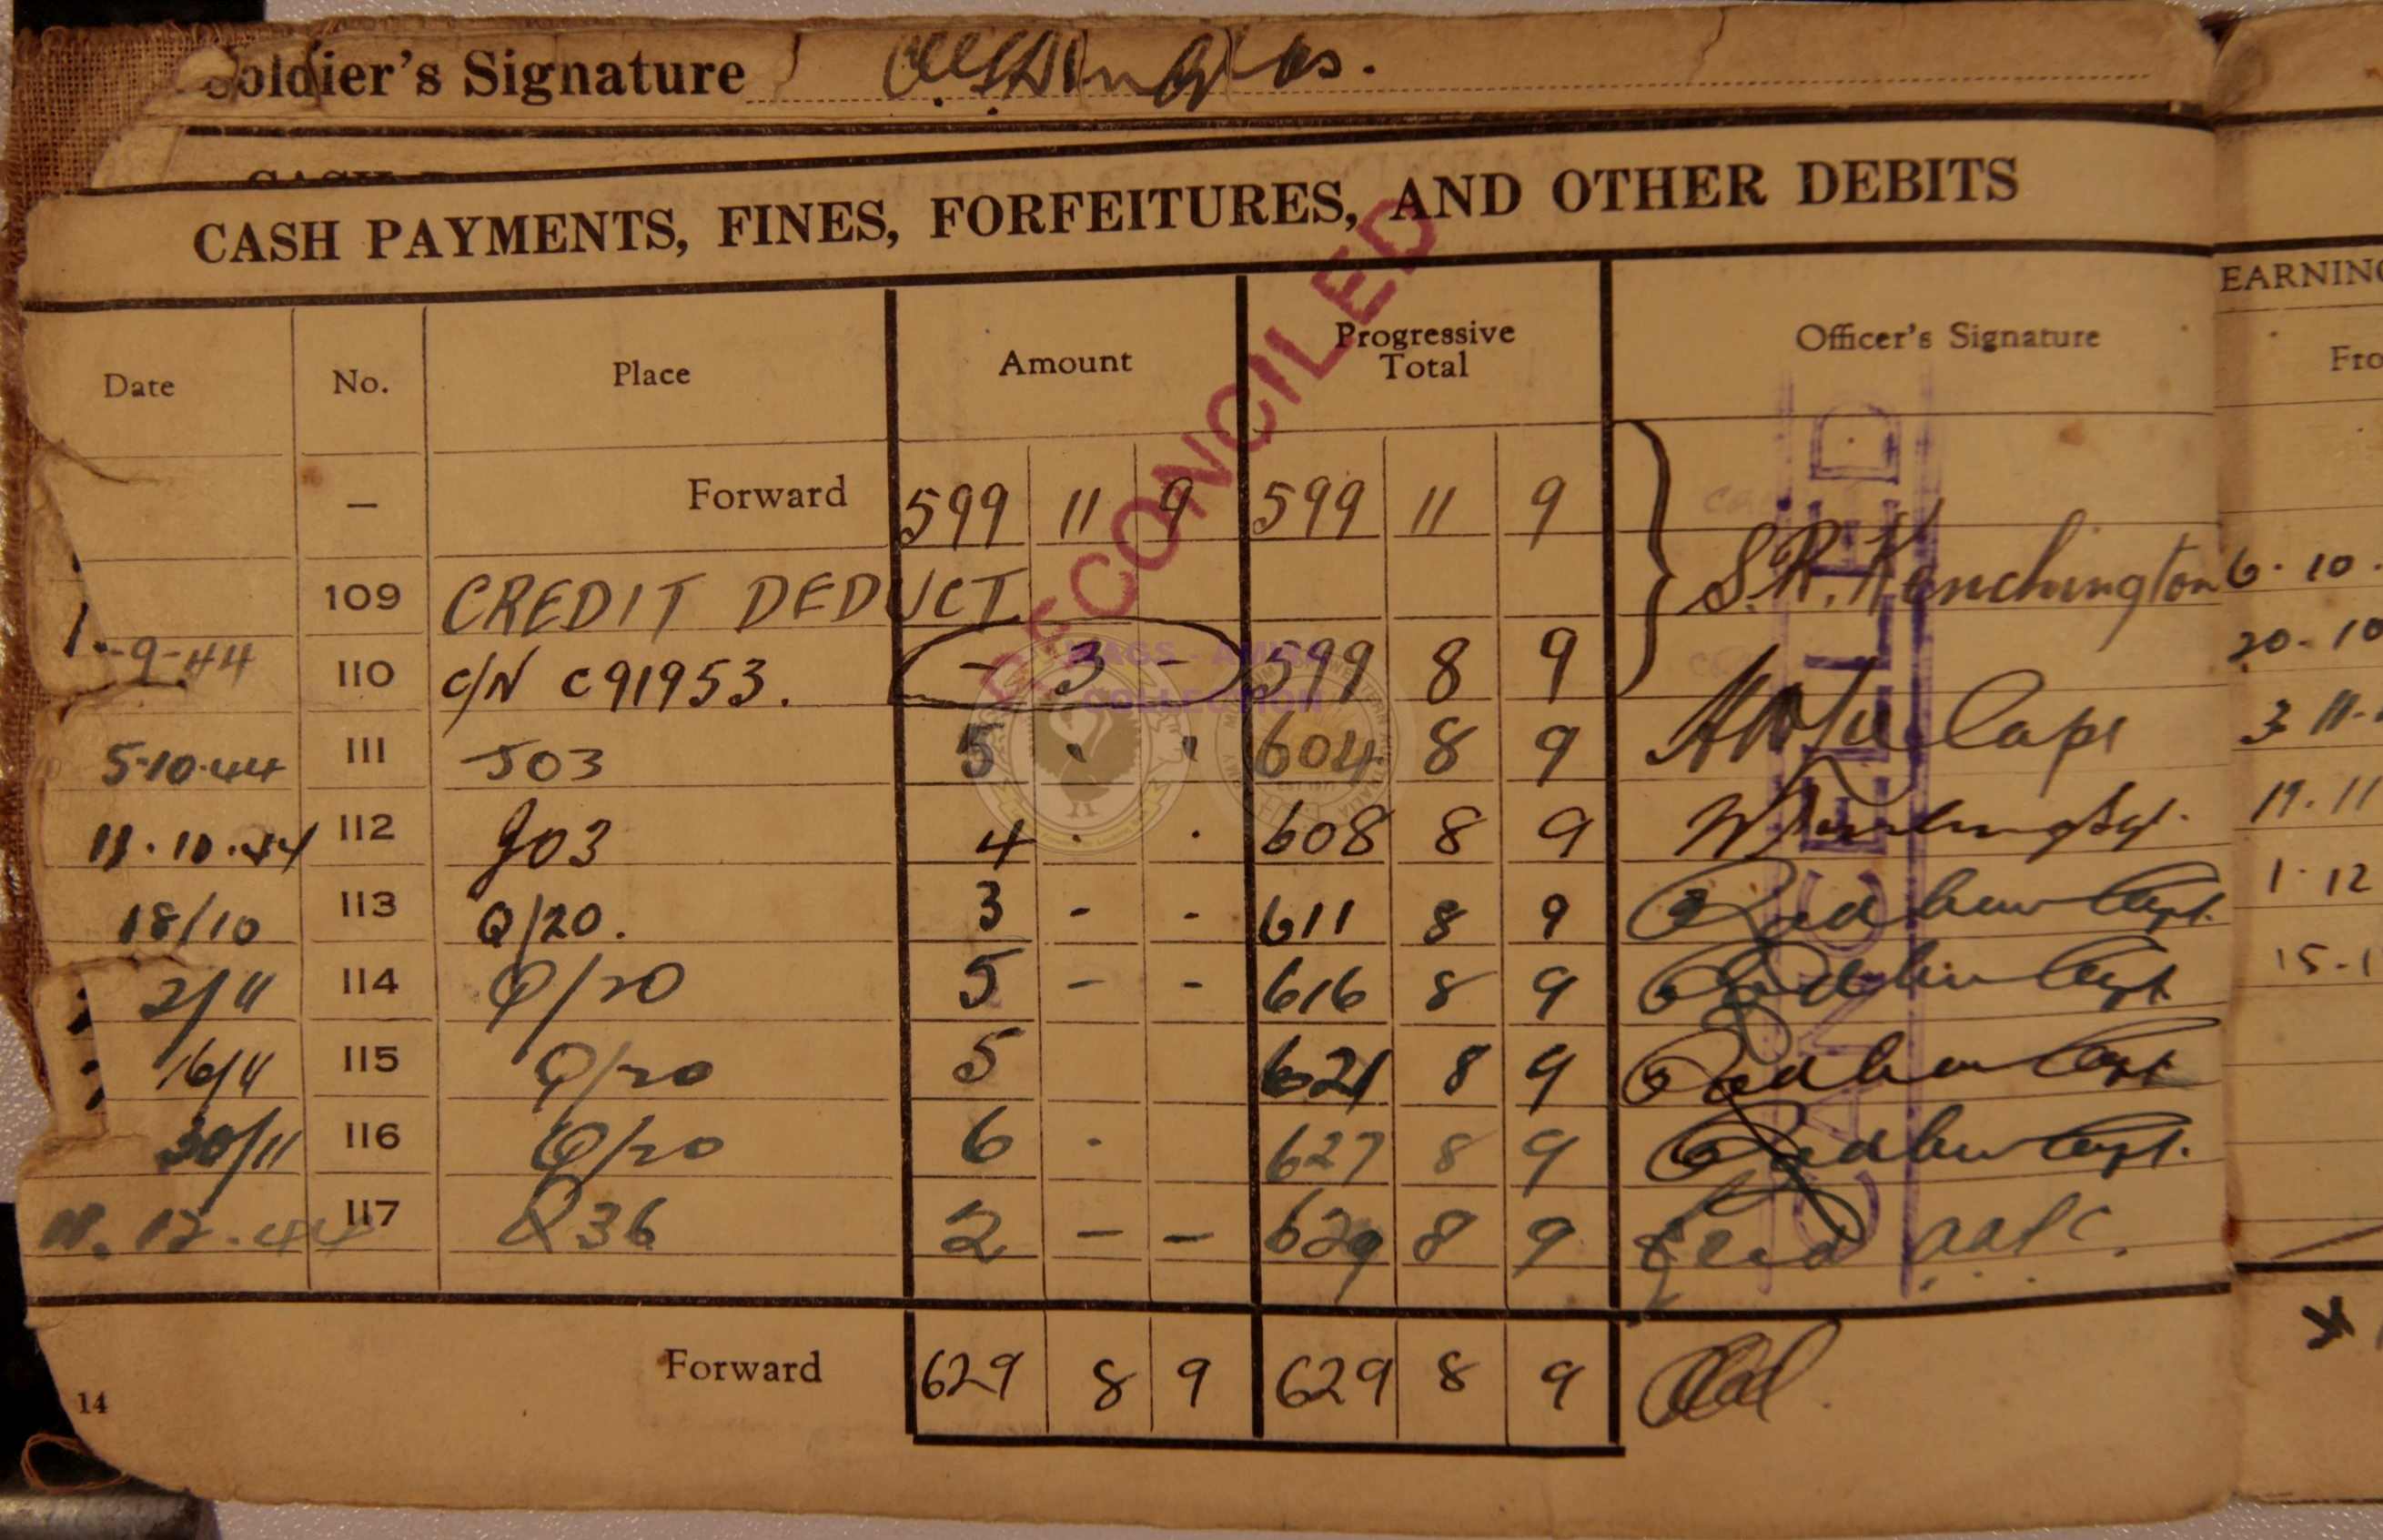 Soldier's Signature
CASH PAYMENTS, FINES, FORFEITURES, AND OTHER DEBITS
Date No. Place Amount Progressive Total Officer's Signature
— Forward 599 11 9 599 11 9
109 CREDIT DEDUCT S.R. Kenchington
-9-44 110 C/N C91953. - 3 - 599 8 9
5-10-44 111 J03 5 " " 604 8 9 Capt
11.10.44 112 J03 4 . . 608 8 9
18/10 113 Q/20. 3 - - 611 8 9 Capt.
2/11 114 Q/20 5 - - 616 8 9 Capt.
16/11 115 Q/20 5 621 8 9 Capt
30/11 116 Q/20 6 - 627 8 9 Capt.
11.12.44 117 Q36 2 - - 629 8 9
Forward 629 8 9 629 8 9
14
RECONCILED
CANCELLED
EARNING
Fro
6.10.
20-10
3 11-
19.11
1.12
15-1
COLLECTION